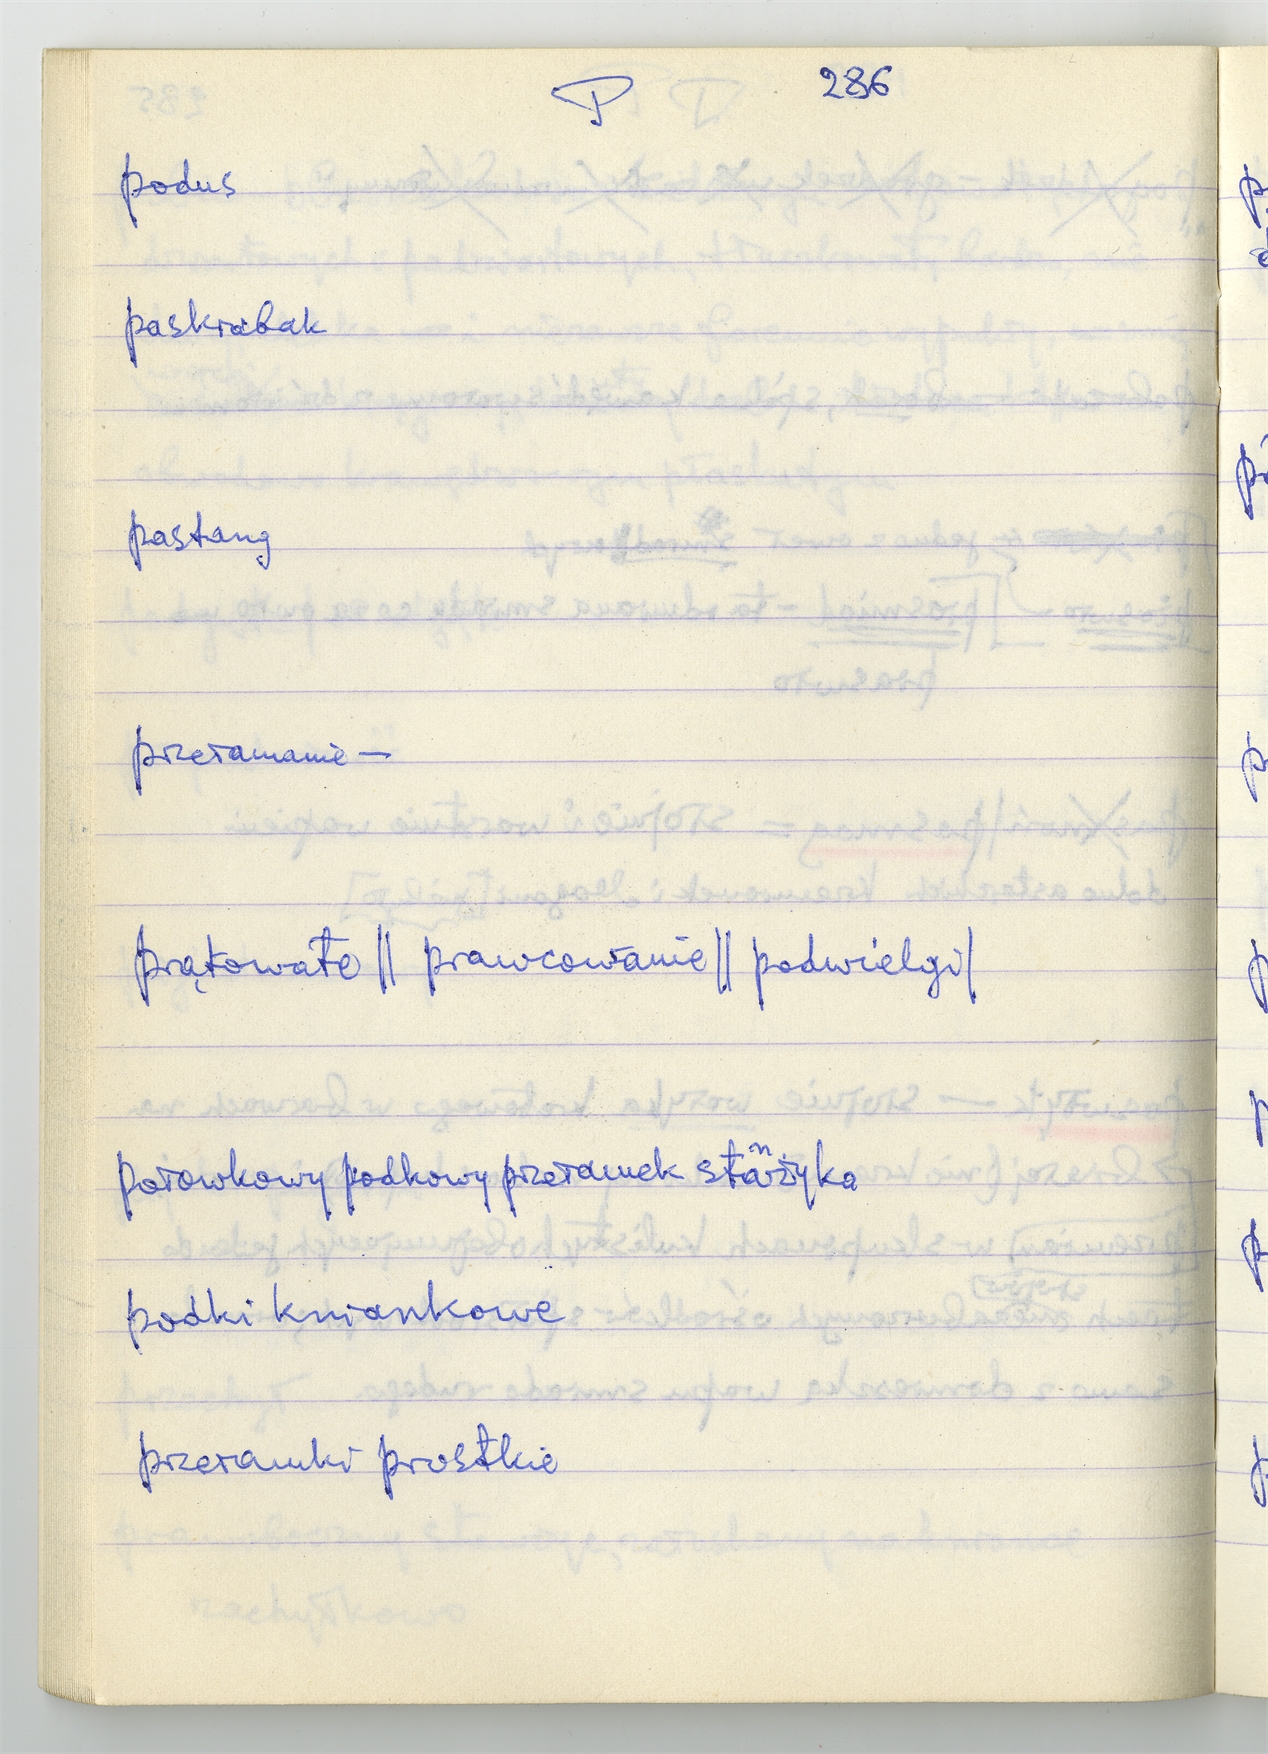 P 286
podus
paskrabak
pastang
przeramanie —
prątowate || prawcowanie || podwielgi |
porowkowy podkowy przeramek
podki kniankowe
przeramki prostkie